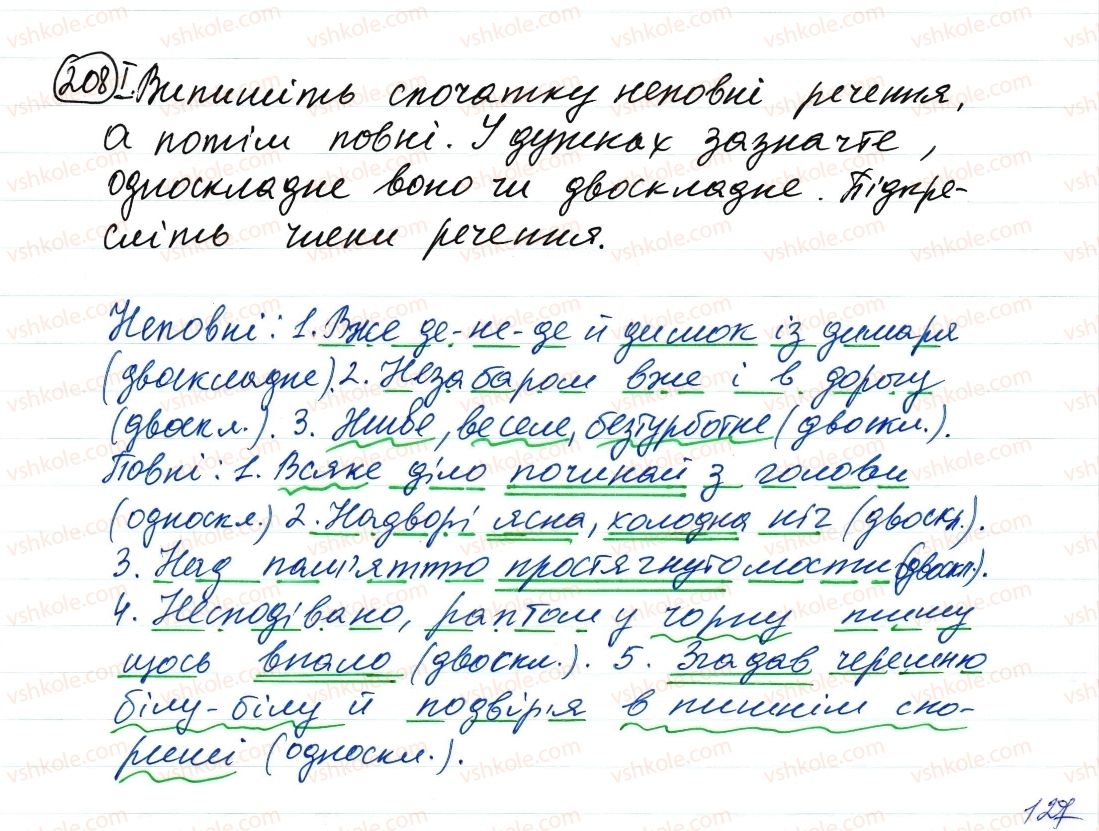 208 I. Випишіть спочатку неповні речення,
а потім повні. У дужках зазначте,
односкладне воно чи двоскладне. Підкре-
сліть члени речення.
Неповні: 1. Вже де-не-де й димок із димаря
(двоскладне). 2. Незабаром вже і в дорогу
(двоскл.). 3. Живе, веселе, безтурботне (двоскл.).
Повні: 1. Всяке діло починай з голови
(односкл.) 2. Надворі ясна, холодна ніч (двоскл.).
3. Над пам'яттю простягнуто мости (двоскл.).
4. Несподівано, раптом у чорну тишу
щось впало (двоскл.). 5. Згадав черешню
білу-білу й подвір'я в пишнім спо-
риші (односкл.).
127